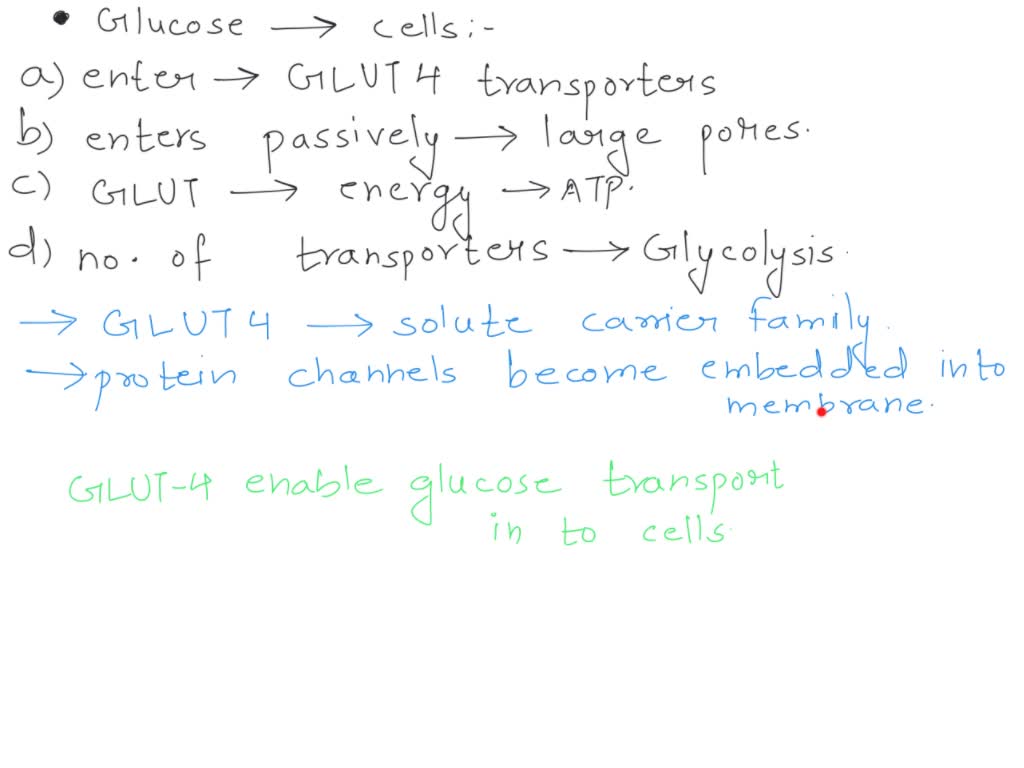 • Glucose → cells:-
a) enter → GLUT 4 transporters
b) enters passively → large pores.
c) GLUT → energy → ATP.
d) no. of transporters → Glycolysis.
→ GLUT 4 → solute carrier family.
→ protein channels become embedded into
membrane.
GLUT-4 enable glucose transport
in to cells.